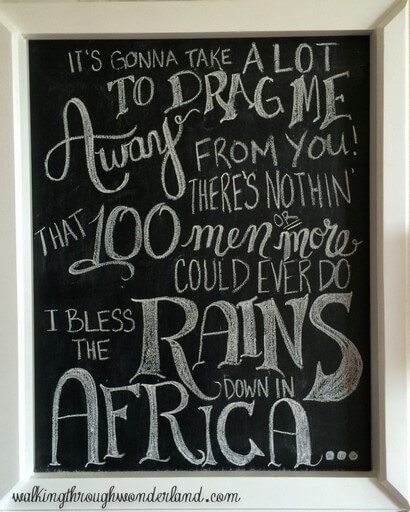 IT'S GONNA TAKE A LOT
TO DRAG ME
Away FROM YOU!
THERE'S NOTHIN'
THAT 100 men OR more
COULD EVER DO
I BLESS
THE RAINS
DOWN IN
AFRICA...
walkingthroughwonderland.com